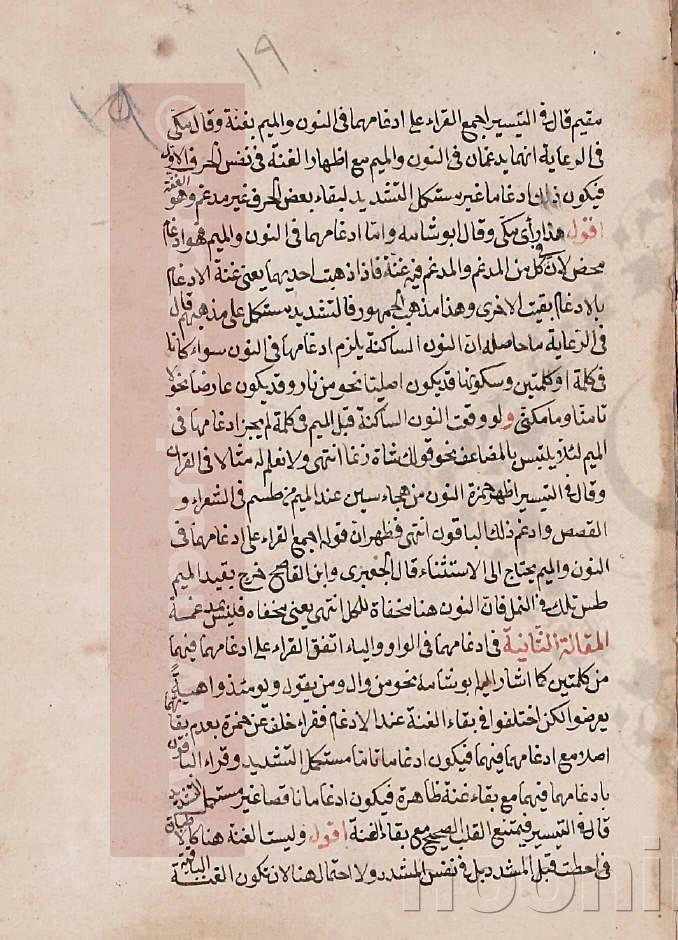 ١٩
١٩
مقيم قال فى التيسير اجمع القراء على ادغامهما فى النون والميم بغنة وقال مكى
فى الرعاية انهما يدغمان فى النون والميم مع اظهار الغنة فى نفس الحرف الاول
فيكون ذلك ادغاما غير مستكمل التشديد لبقاء بعض الحرف غير مدغم وهو الغنة
اقول هذا رأى مكى وقال ابو شامه واما ادغامهما فى النون والميم فهو ادغام
محض لان فى كل من المدغم والمدغم فيه غنة فاذا ذهبت احديهما يعنى غنة الادغام
بالادغام بقيت الاخرى وهذا مذهب الجمهور فالتشديد مستكمل على مذهبهم قال
فى الرعاية ما حاصله ان النون الساكنة يلزم ادغامها فى النون سواء كانا
فى كلمة او كلمتين وسكونها قد يكون اصليا نحو من نار وقد يكون عارضا نحو لا
تامنا وما مكنى ولو وقعت النون الساكنة قبل الميم فى كلمة لم يجز ادغامها فى
الميم لئلا يلتبس بالمضاعف نحو قولك شاة زنما انتهى ولا نعلم له مثالا فى القرآن
وقال فى التيسير اظهر حمزة النون من هجاء سين عند الميم من طسم فى الشعراء و
القصص وادغم ذلك الباقون انتهى فظهر ان قوله اجمع القراء على ادغامهما فى
النون والميم يحتاج الى الاستثناء قال الجعبرى وابن القاصح خرج بقيد الميم
طس تلك فى النمل فان النون هنا مخفاة للكل انتهى يعنى مخفاه فليس بمدغمة
المقالة الثانية فى ادغامهما فى الواو والياء اتفق القراء على ادغامهما فيهما
من كلمتين كما اشار اليه ابو شامه نحو من وال ومن يقول ويومئذ واهية
يعرضوا لكن اختلفوا فى بقاء الغنة عند الادغام فقراء خلف عن حمزة بعدم بقائها
اصلا مع ادغامهما فيهما فيكون ادغاما تاما مستكمل التشديد وقراء الباقون
بادغامهما فيهما مع بقاء غنة ظاهرة فيكون ادغاما ناقصا غير مستكمل التشديد
قال فى التيسير فيمتنع القلب الصحيح مع بقاء الغنة اقول وليست الغنة هنا كالاطباق
فى احطت قبل المشدد بل فى نفس المشدد ولا احتمال هنا لان تكون الغنة الباقية
noorli